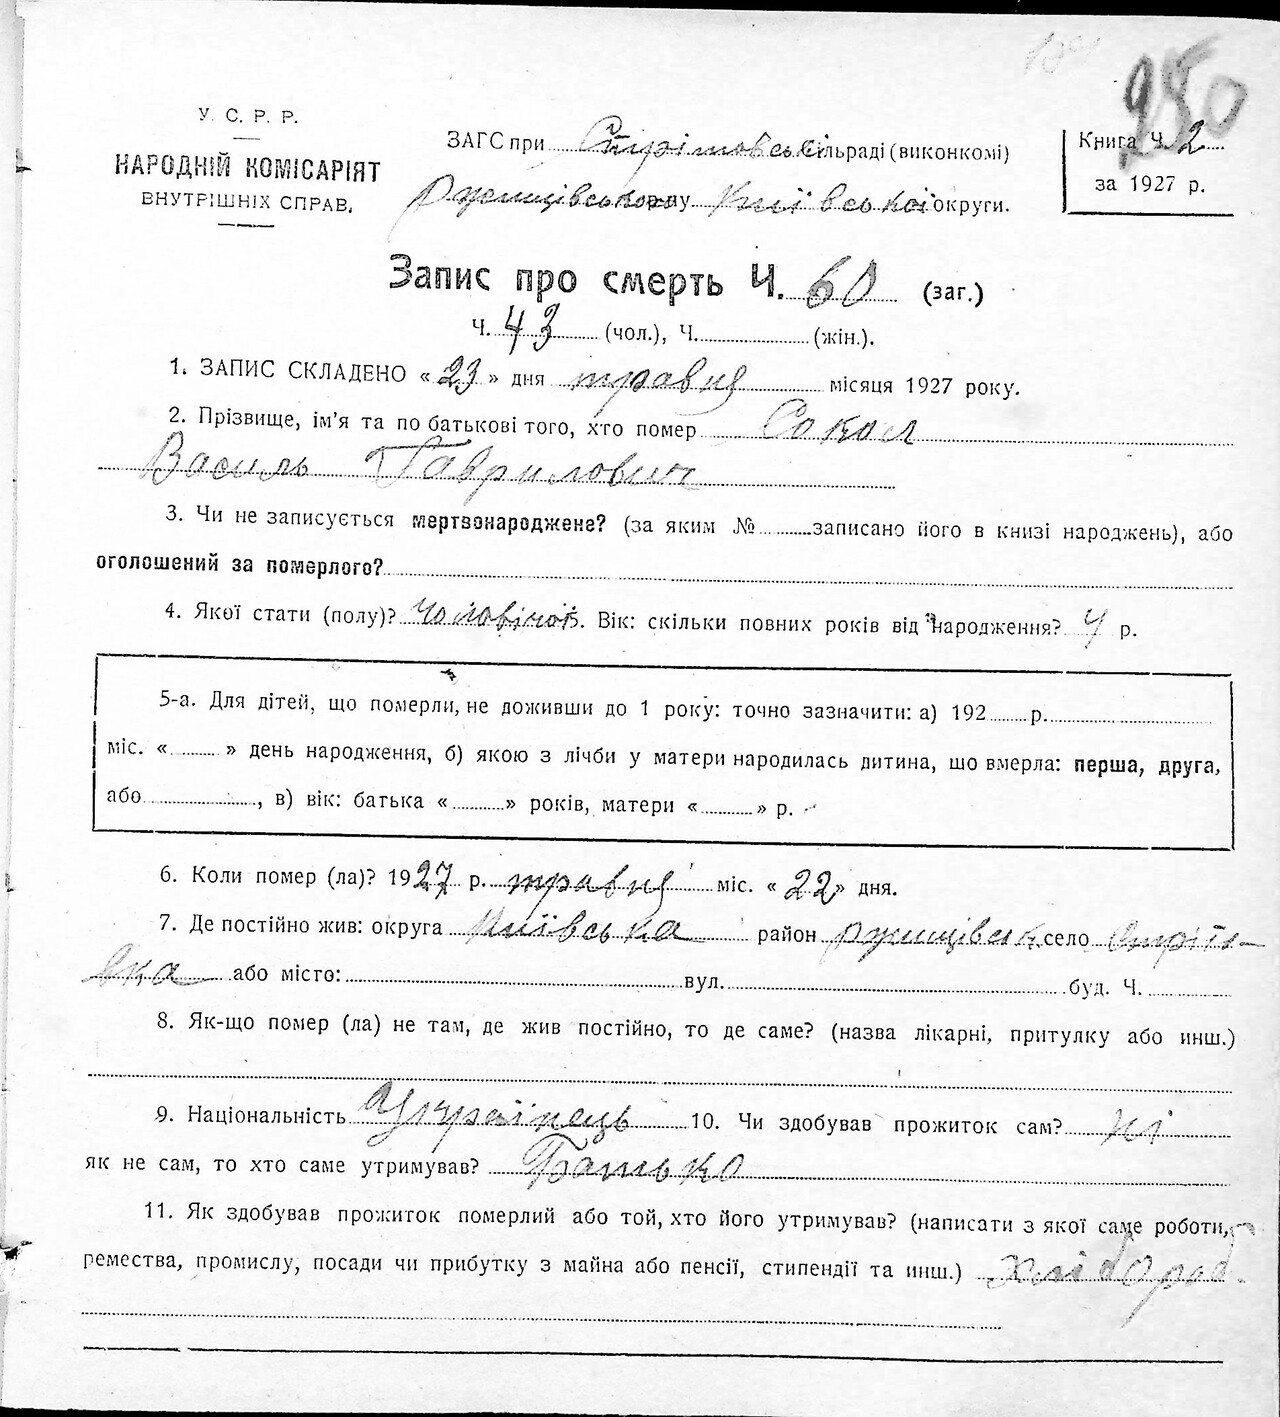 250
У. С. Р. Р.
НАРОДНІЙ КОМІСАРІЯТ
ВНУТРІШНІХ СПРАВ.
ЗАГС при Стрітовській сільраді (виконкомі)
Ржищівського р-ну Київської округи.
Книга Ч. 2
за 1927 р.
Запис про смерть Ч. 60 (заг.)
Ч. 43 (чол.), Ч. (жін.).
1. ЗАПИС СКЛАДЕНО «23» дня травня місяця 1927 року.
2. Прізвище, ім'я та по батькові того, хто помер Сокол
Василь Гаврилович
3. Чи не записується мертвонароджене? (за яким № записано його в книзі народжень), або
оголошений за померлого?
4. Якої стати (полу)? Чоловічої. Вік: скільки повних років від народження? 4 р.
5-а. Для дітей, що померли, не доживши до 1 року: точно зазначити: а) 192 р.
міс. « » день народження, б) якою з лічби у матери народилась дитина, що вмерла: перша, друга,
або , в) вік: батька « » років, матери « » р.
6. Коли помер (ла)? 1927 р. травня міс. «22» дня.
7. Де постійно жив: округа Київська район Ржищівськ село Стріто-
вка або місто: вул. буд. Ч.
8. Як-що помер (ла) не там, де жив постійно, то де саме? (назва лікарні, притулку або инш.)
9. Національність Українець 10. Чи здобував прожиток сам? ні
як не сам, то хто саме утримував? Батько
11. Як здобував прожиток померлий або той, хто його утримував? (написати з якої саме роботи,
ремества, промислу, посади чи прибутку з майна або пенсії, стипендії та инш.) хлібороб